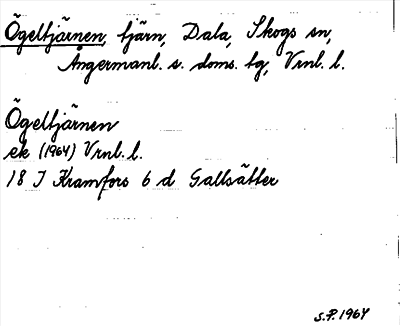 Ögeltjärnen, tjärn, Dala, Skogs sn,
Ångermanl. s. doms. tg, Vrnl. l.
Ögeltjärnen
ek (1964) Vrnl. l.
18 I Kramfors 6 d Gallsätter
S.P. 1964